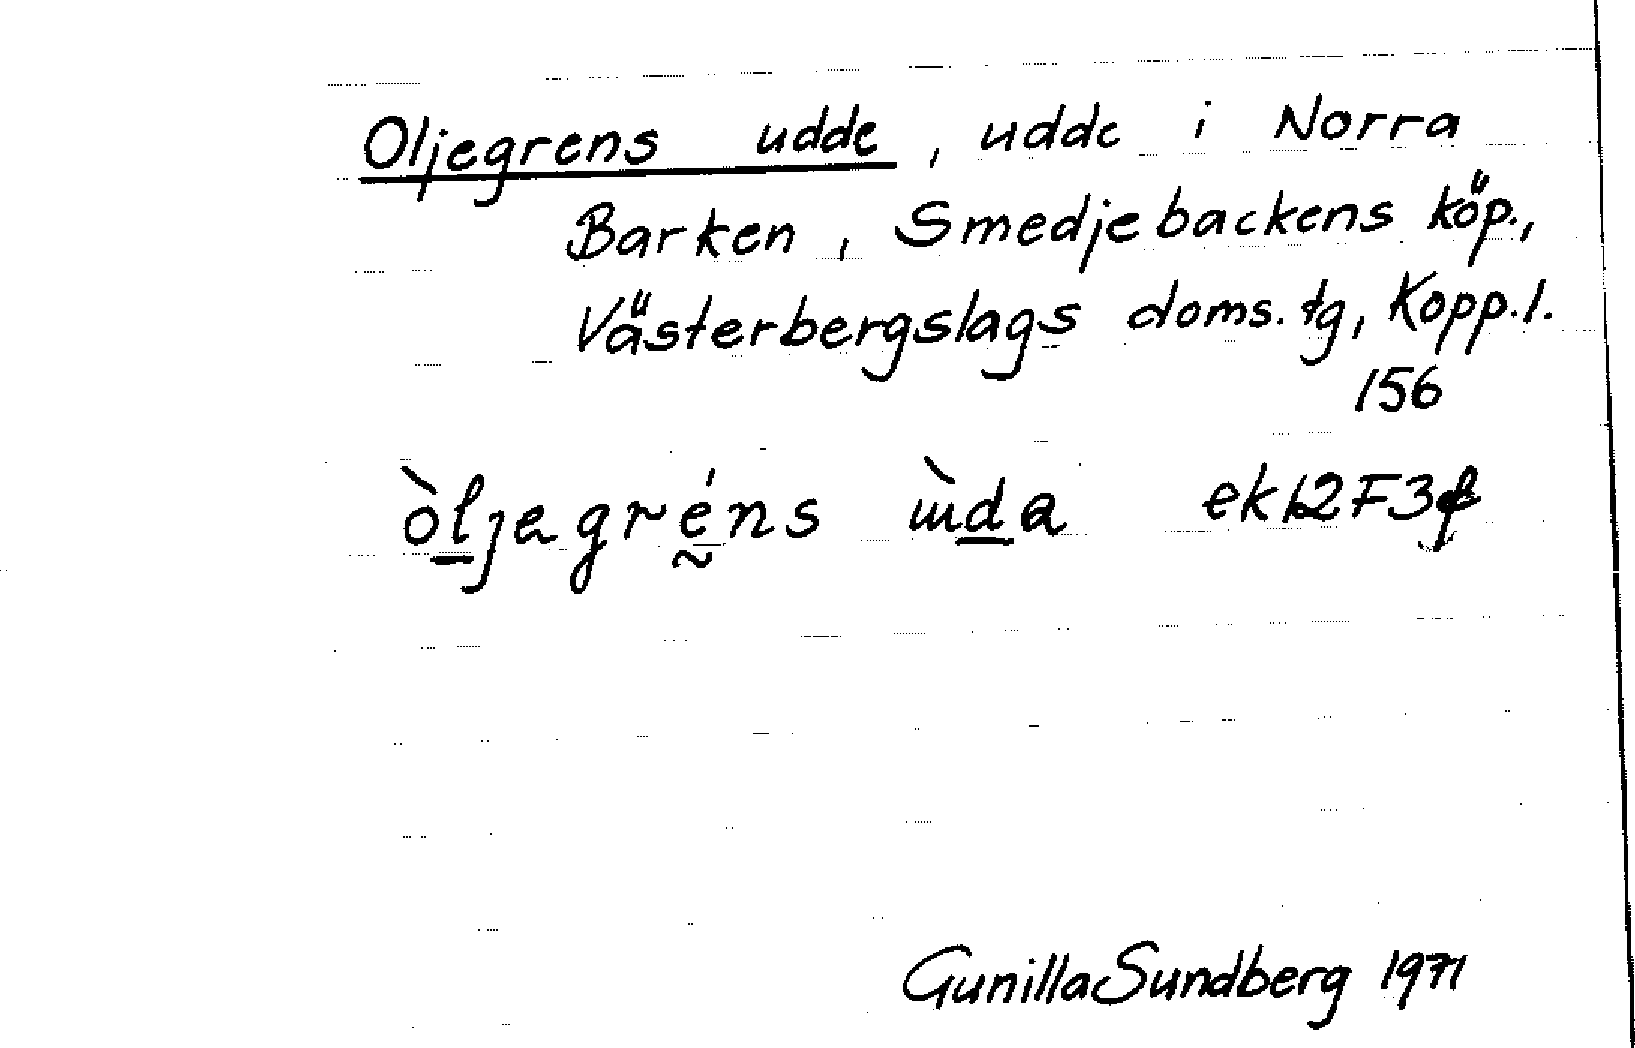 Oljegrens udde, udde i Norra
Barken, Smedjebackens köp.,
Västerbergslags doms.tg, Kopp.l.
156
òljegréns ùda ek 12F3f
Gunilla Sundberg 1971